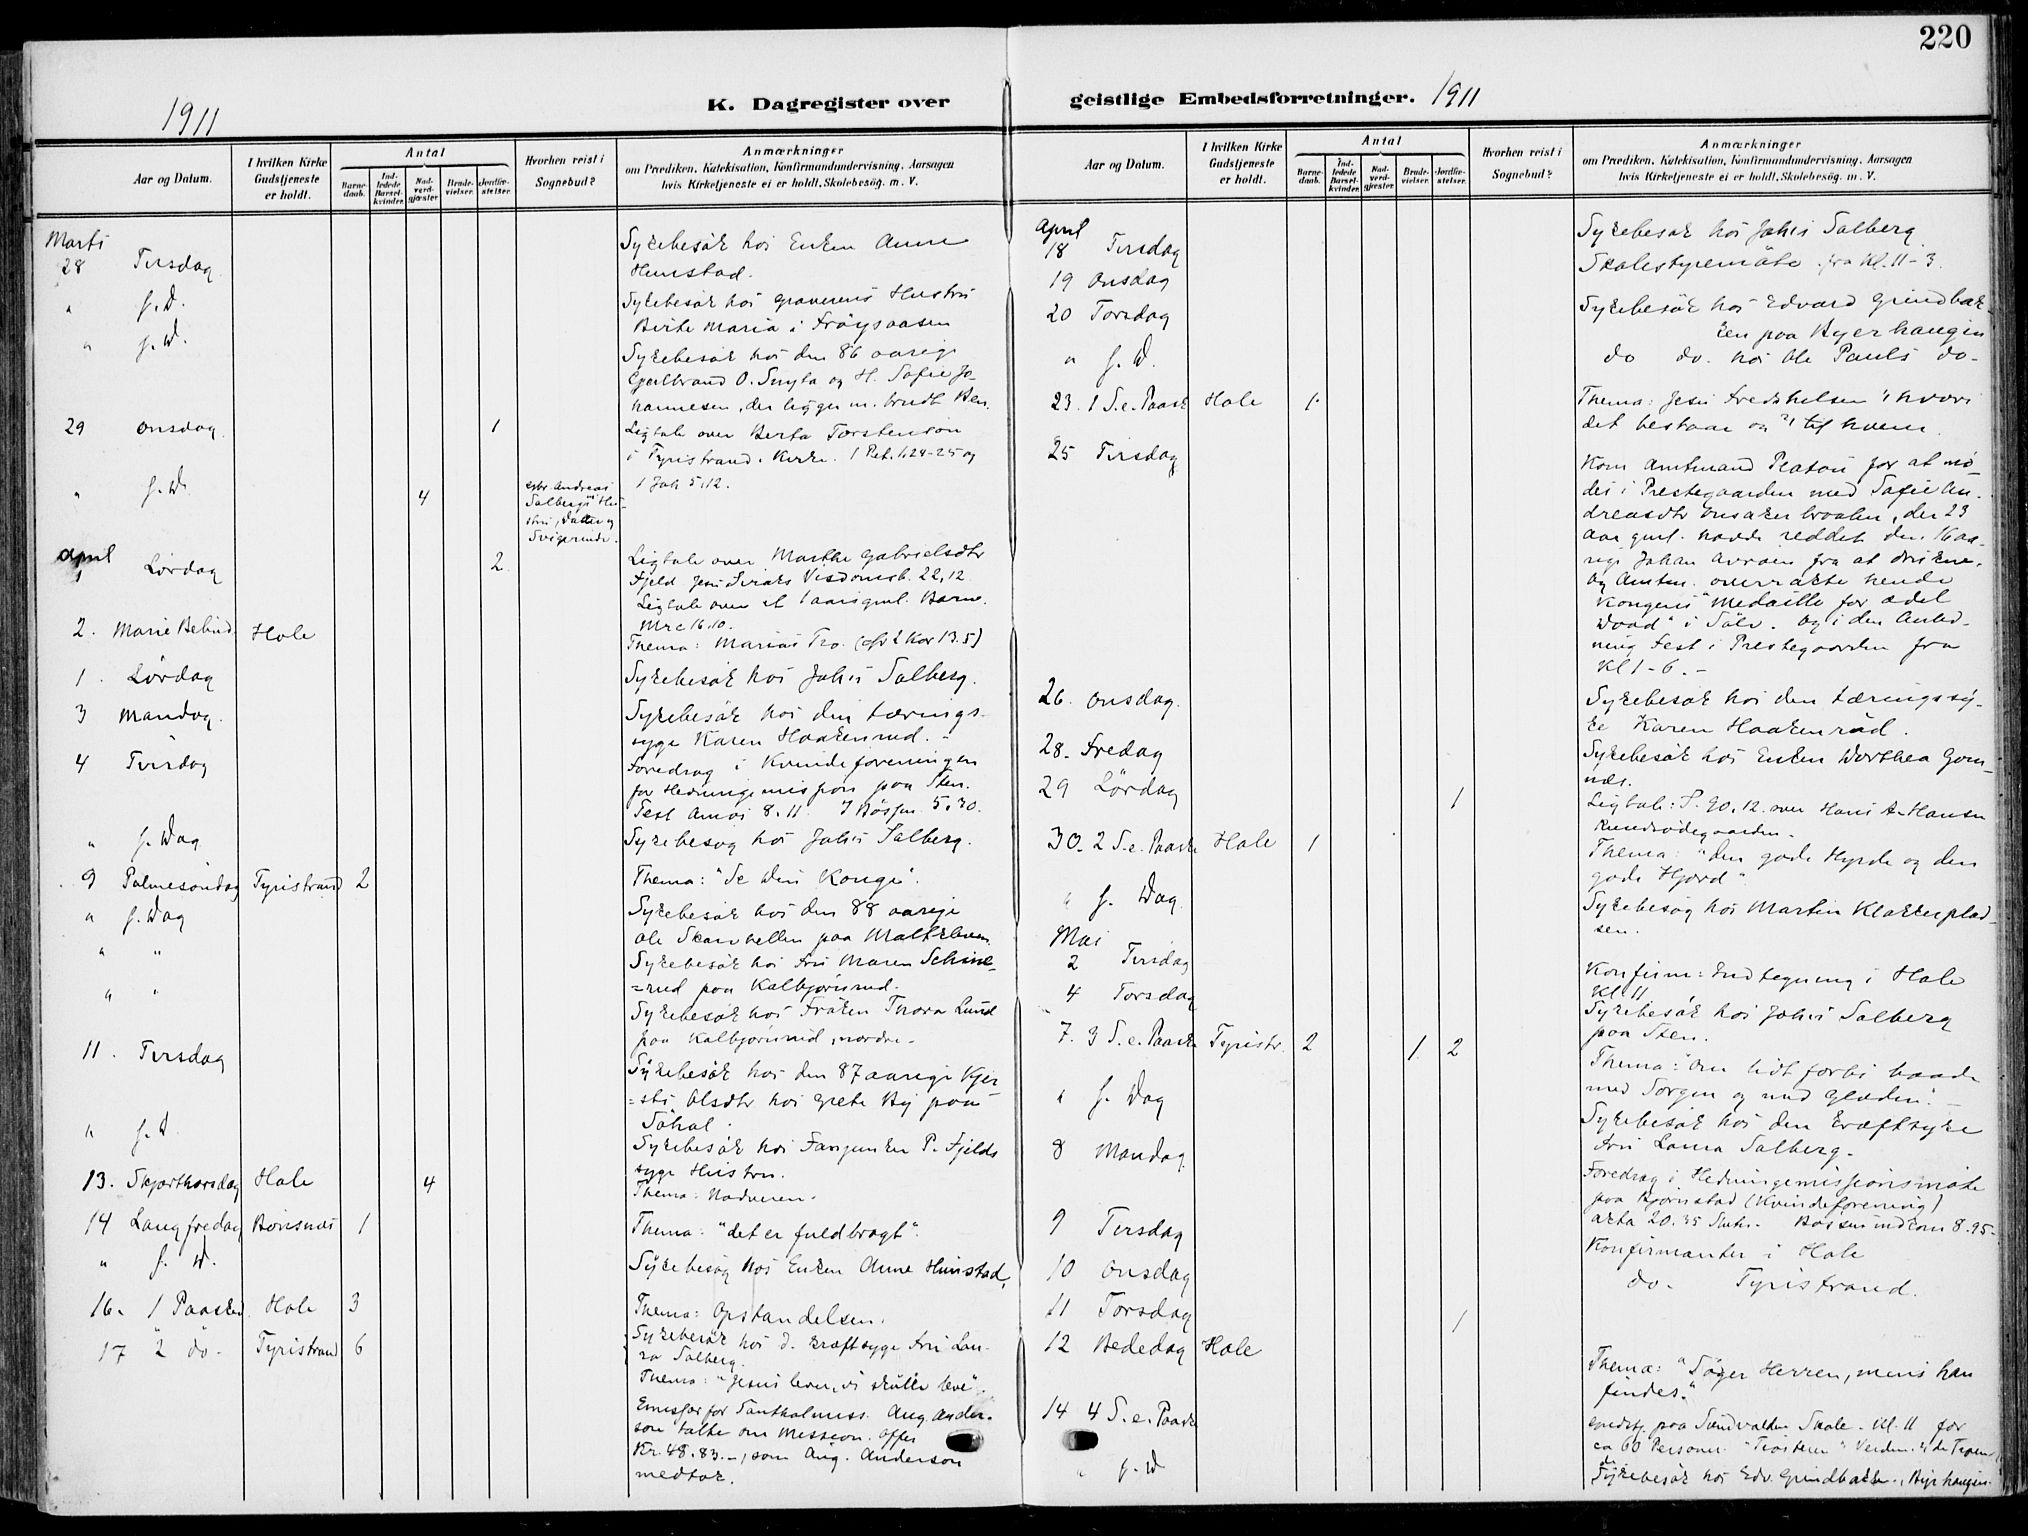 220
1911
K. Dagregister over
geistlige Embedsforretninger. 1911
Aar og Datum.
I hvilken Kirke Gudstjeneste er holdt.
Antal
Barnedaab.
Indledede Barselkvinder.
Nadverdgjæster
Brudevielser.
Jordfæstelser.
Hvorhen reist i Sognebud?
Anmærkninger
om Prædiken, Katekisation, Konfirmandundervisning, Aarsagen
hvis Kirketjeneste ei er holdt, Skolebesøg. m. V.
Marts
28 Tirsdag Sykebesök hos Enken Anne
Hunstad.
" s. D. Sykebesök hos graverens Hustru
Birte Maria i Fröysaasen
" s. D. Sykebesök hos den 86 aarige
Gulbrand O. Snyta og H. Sofie Jo-
hannesen, der ligger m. brudt Ben.
29 Onsdag 1 Ligtale over Berta Torstenson
i Tyristrand. Kirke. 1 Pet. 1.24-25 og
1 Joh 5.12.
" s. D. 4 Andreas
Salbergs Hu-
stru, Datter og
Svigerinde.
April
1 Lördag 2 Ligtale over Marthe Gabrielsdtr
Fjeld Jesu Siraks Visdomsb. 22,12
Ligtale over et 1 aars gml. Barn.
Mrc 16.10.
2. Marie Bebud. Hole Thema: Marias Tro. (cfr 2 Kor 13.5)
1. Lördag Sykebesök hos Johs Salberg.
3 Mandag. Sykebesök hos den tærings-
syge Karen Haakenrud.
4 Tirsdag Foredrag i Kvindeforeningen
for Hedningemissjon paa Sten.
Text Amos 8.11 I Bössen 5.30.
" s. Dag Sykebesøg hos Johs Salberg.
9 Palmesöndag Tyristrand 2 Thema: "Se Din Konge".
" s. Dag Sykebesök hos den 88 aarige
Ole Skarvellen paa
" " Sykebesök hos Fru Maren
=rud paa Kalbjörnrud.
" " Sykebesök hos Fröken Thora Lund
paa Kalbjörnrud, nordre.
11. Tirsdag Sykebesök hos den 87 aarige Kjer
=sti Olsdtr hos Grete By paa
Söhol.
" s. D. Sykebesök hos P. Fjelds
syge Hustru.
13. Skjærthorsdag Hole 4 Thema: Nadveren.
14 Langfredag Bønsnæs 1 Thema: "det er fuldbragt".
" s. D. Sykebesøg hos Enken Anne Hunstad,
16. 1 Paasked. Hole 3 Thema: Opstandelsen.
Sykebesök hos d. kræftsyge Fru Lau-
ra Salberg.
17 2 do. Tyristrand 6 Thema: "Jesus lever, vi skulle leve".
Emissær for Santhalmiss. Aug. Ander-
son talte om Mission. Offer
Kr. 48.83. -, som Aug. Anderson
medtok.
April
18 Tirsdag Sykebesøk hos Johs Salberg
19 Onsdag Skolestyremöte fra Kl. 11-3.
20 Torsdag Sykebesök hos Edvard Grindbak-
ken paa Byerhaugen
" s. D. do do. hos Ole Pauls do-
23. 1 S. e. Paask Hole 1 Thema: Jesu Fredshilsen 1 hvori
det bestaar og 2 til hvem.
25 Tirsdag Kom Amtmand Platou for at mö-
des i Prestegaarden med Sofie An-
dreasdtr Onsakerbraaten, der 23
aar gml. havde reddet den 16 aa-
rige Johan fra at drukne,
og Amtm. overrakte hende
Kongens "Medaille for ædel
Daad" i Sölv. Og i den Anled-
ning Fest i Prestegaarden fra
Kl 1-6. -
26. Onsdag. Sykebesök hos den tæringssy-
ke Karen Haakenrud.
28. Fredag Sykebesök hos Enken Dorthea Gom-
næs.
29 Lördag 1 Ligtale: S. 90,12. over Hans A. Hansen
Rundsödegaarden.
30. 2 S. e. Paaske Hole 1 Thema: "den gode Hyrde og den
gode Hjord".
" s. Dag. Sykebesøg hos Martin Klækkenplad-
sen.
Mai
2 Tirsdag Konfirm: Indtegning i Hole
Kl. 11
4 Torsdag Sykebesök hos Johs Salberg
paa Sten.
7. 3 S. e. Paaske Tyristr. 2 1. 2 Thema: "Om lidt forbi baade
med Sorgen og med Glæden". -
" s. Dag Sykebesök hos den kræftsyke
Fru Laura Salberg.
8 Mandag Foredrag i Hedningemissionsmöte
paa Bjørnstad (Kvindeforening)
20.35 Bössen indkom 8.95.
9 Tirsdag Konfirmanter i Hole
10 Onsdag do. Tyristrand.
11 Torsdag 1
12 Bededag Hole Thema: "Søger Herren, mens han
findes".
14 4 S. e. Paaske paa Sundvolden Skole. Kl. 11 for
ca 60 Personer.
" s. D Sykebesök hos Edv. Grindbakken, Byerhaugen.